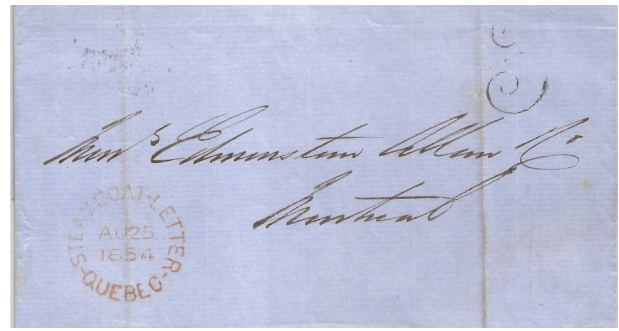 Mess^rs Edmonstone Allan & Co
Montreal
STEAMBOAT-LETTER
AU 25
1854
-QUEBEC-